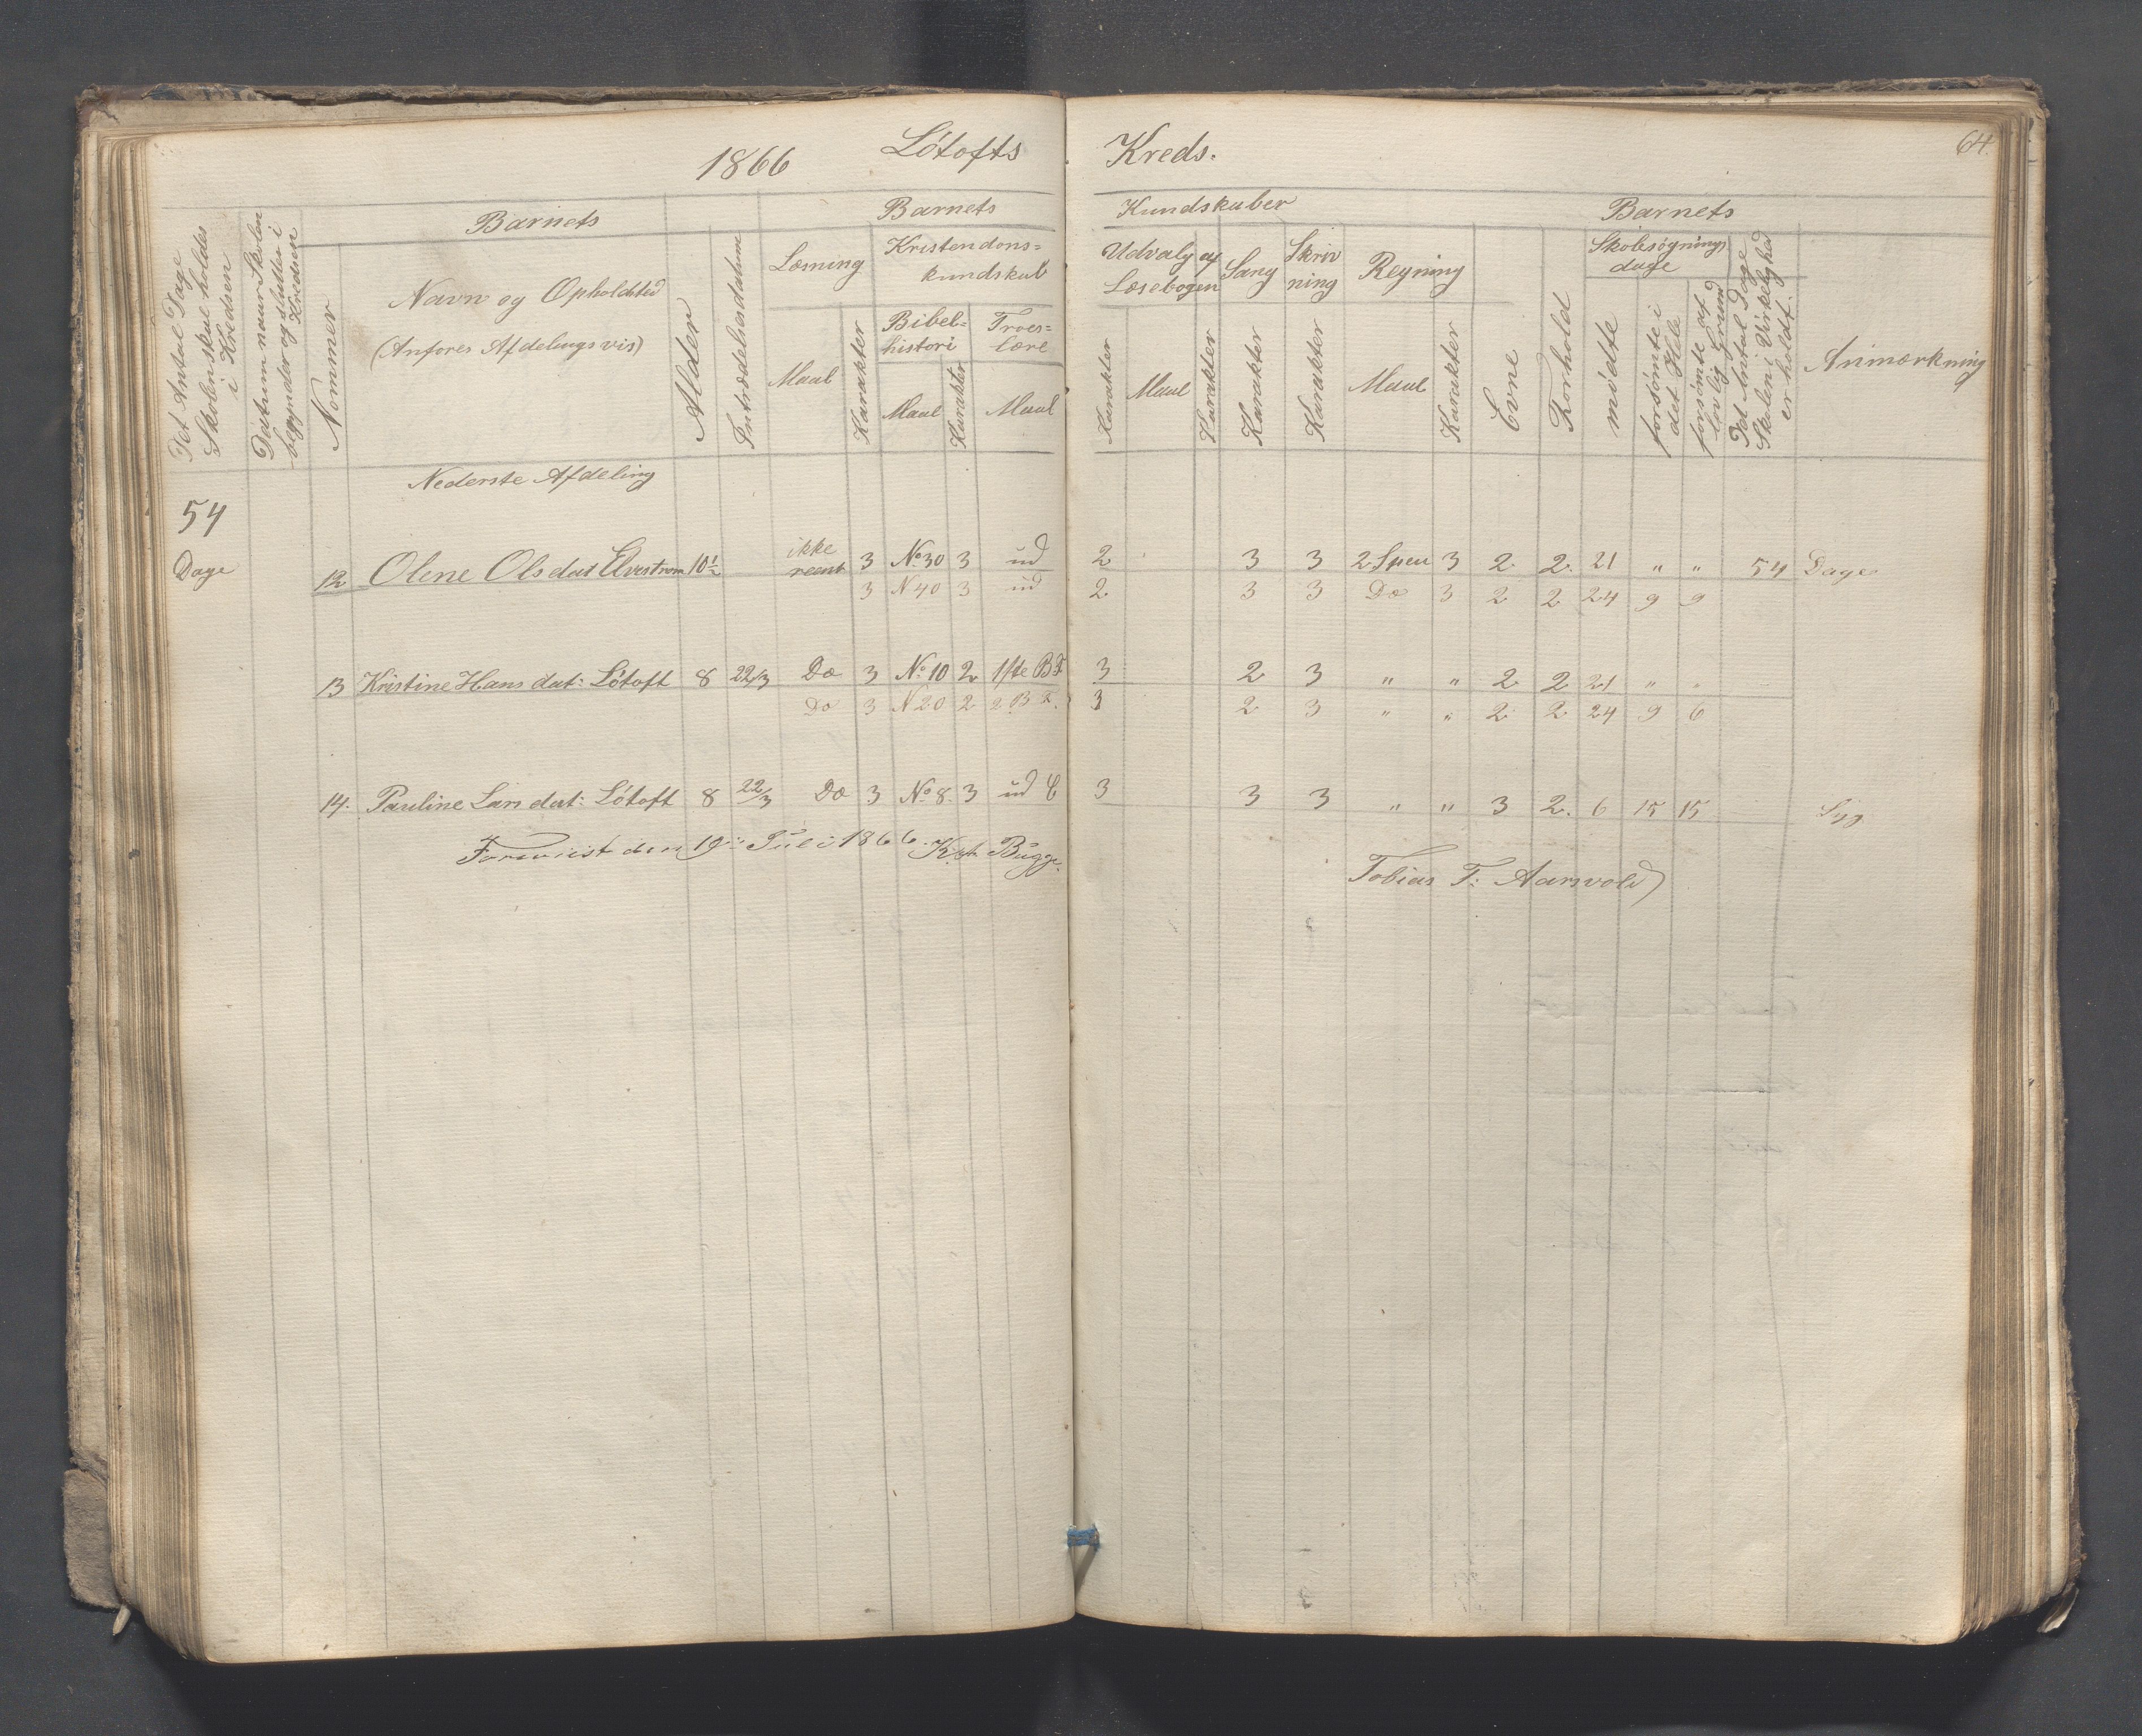 1866 Lótofts Kreds.
64.
Det Antal Dage Skolen skal holdes i Kredsen
Datum naar Skolen begynder og slutter i Kredsen
Nommer
Barnets
Navn og Opholdsted
(Anføres Afdelingsvis)
Alder
Intrædelsesdatum
Barnets Kundskaber
Læsning
Maal
Karakter
Kristendoms=
kundskab
Bibel=
histori
Maal
Karakter
Troes=
lære
Maal
Karakter
Udvalg af
Læsebogen
Maal
Karakter
Sang
Karakter
Skriv
ning
Karakter
Regning
Maal
Karakter
Barnets
Evne
Forhold
Skolesøgnings
dage
mødte
forsømte i det Hele
forsømte af lovlig Grund
Det Antal Dage Skolen i Virkelighed er holdt.
Anmærkning
Nederste Afdeling
54
Dage
12 Olene Olsdat Elvestrom 10½ ikke reent 3 No 30 3 ud 2 3 3 2 Spec 3 2 2. 21 " " 54 Dage
3 N 40 3 ud 2 3 3 Do 3 2 2 24 9 9
13 Kristine Hans dat: Lótoft 8 22/3 Do 3 No 10 2 1ste B F 3 2 3 " " 2 2 21 " "
Do 3 N 20 2 2 B F. 3 2 3 " " 2 2 24 9 6
14. Pauline Lars dat: Lótoft 8 22/3 Do 3 No 8. 3 ud C 3 3 3 " " 3 2. 6 15 15 Syg
Foreviist den 19de Juli 1866. Bugge.
Tobias T: Aarsvold